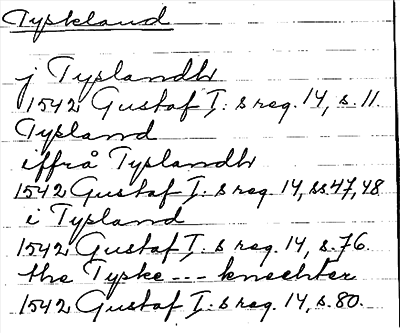 Tyskland
j Tyslandh
1542 Gustaf I:s reg. 14, s. 11.
Tysland
iffrå Tyslandh
1542 Gustaf I:s reg. 14, ss 47, 48
i Tysland
1542 Gustaf I:s reg. 14, s. 76.
the Tyske --- knechter
1542 Gustaf I:s reg. 14, s. 80.